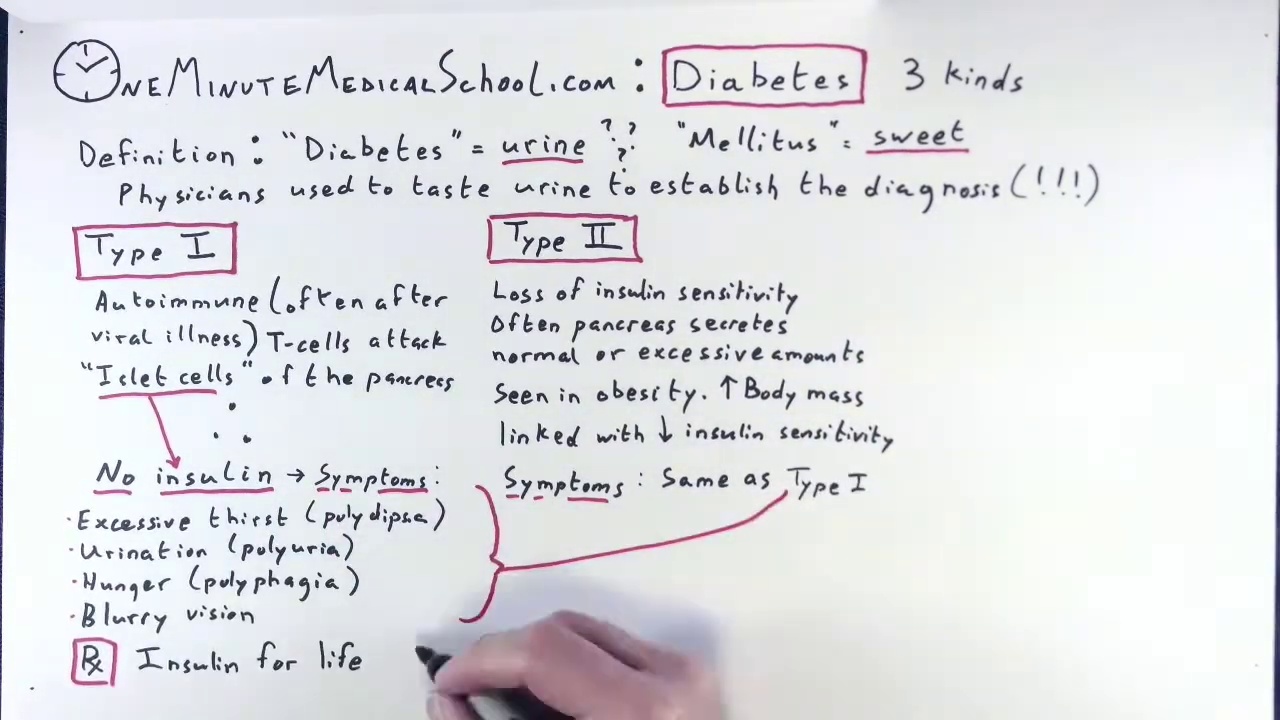 OneMinuteMedicalSchool.com : Diabetes 3 kinds
Definition : "Diabetes" = urine ??? "Mellitus" = sweet
Physicians used to taste urine to establish the diagnosis (!!!)
Type I
Autoimmune (often after
viral illness) T-cells attack
"Islet cells" of the pancreas
∴
No insulin → Symptoms:
·Excessive thirst (polydipsa)
·Urination (polyuria)
·Hunger (polyphagia)
·Blurry vision
Rx Insulin for life
Type II
Loss of insulin sensitivity
Often pancreas secretes
normal or excessive amounts
Seen in obesity. ↑ Body mass
linked with ↓ insulin sensitivity
Symptoms : Same as Type I